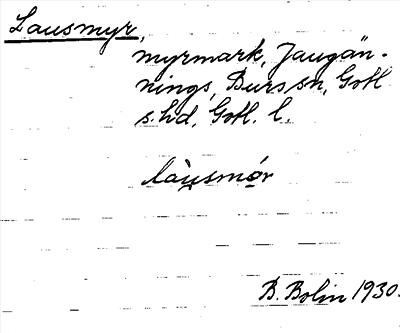 Lausmyr,
myrmark, Jaugän-
nings, Burs sn, Gotl
s.hd, Gotl. l.
làu̯smǫr
B. Bolin 1930.